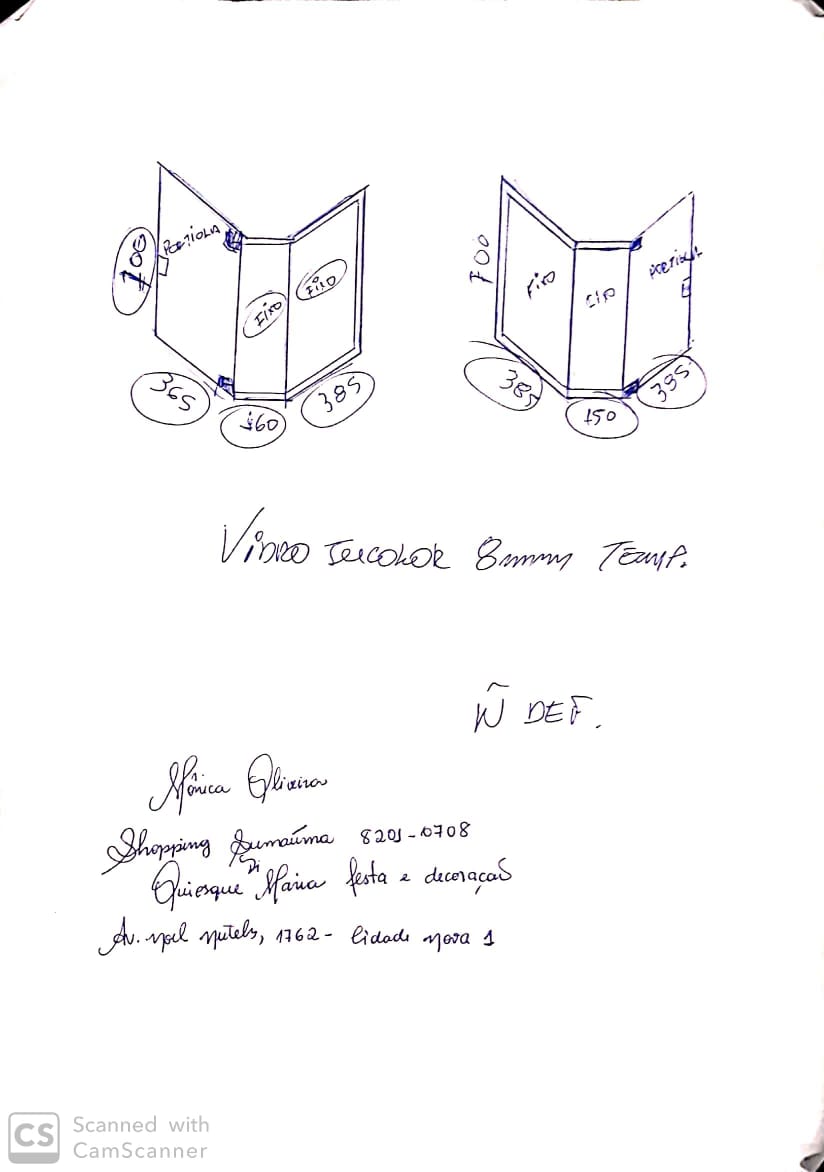 700
PORTIOLA
FIXO
FIXO
365
160
385
700
FIXO
PORTIOLA
385
150
385
VIDRO INCOLOR 8mm TEMP.
Ñ DEF.
Mônica Oliveira
Shopping Sumaúma 8201-0708
Quiosque Di Maria festa e decoração
Av. Noel Nutels, 1762 - Cidade Nova 1
CS Scanned with
CamScanner